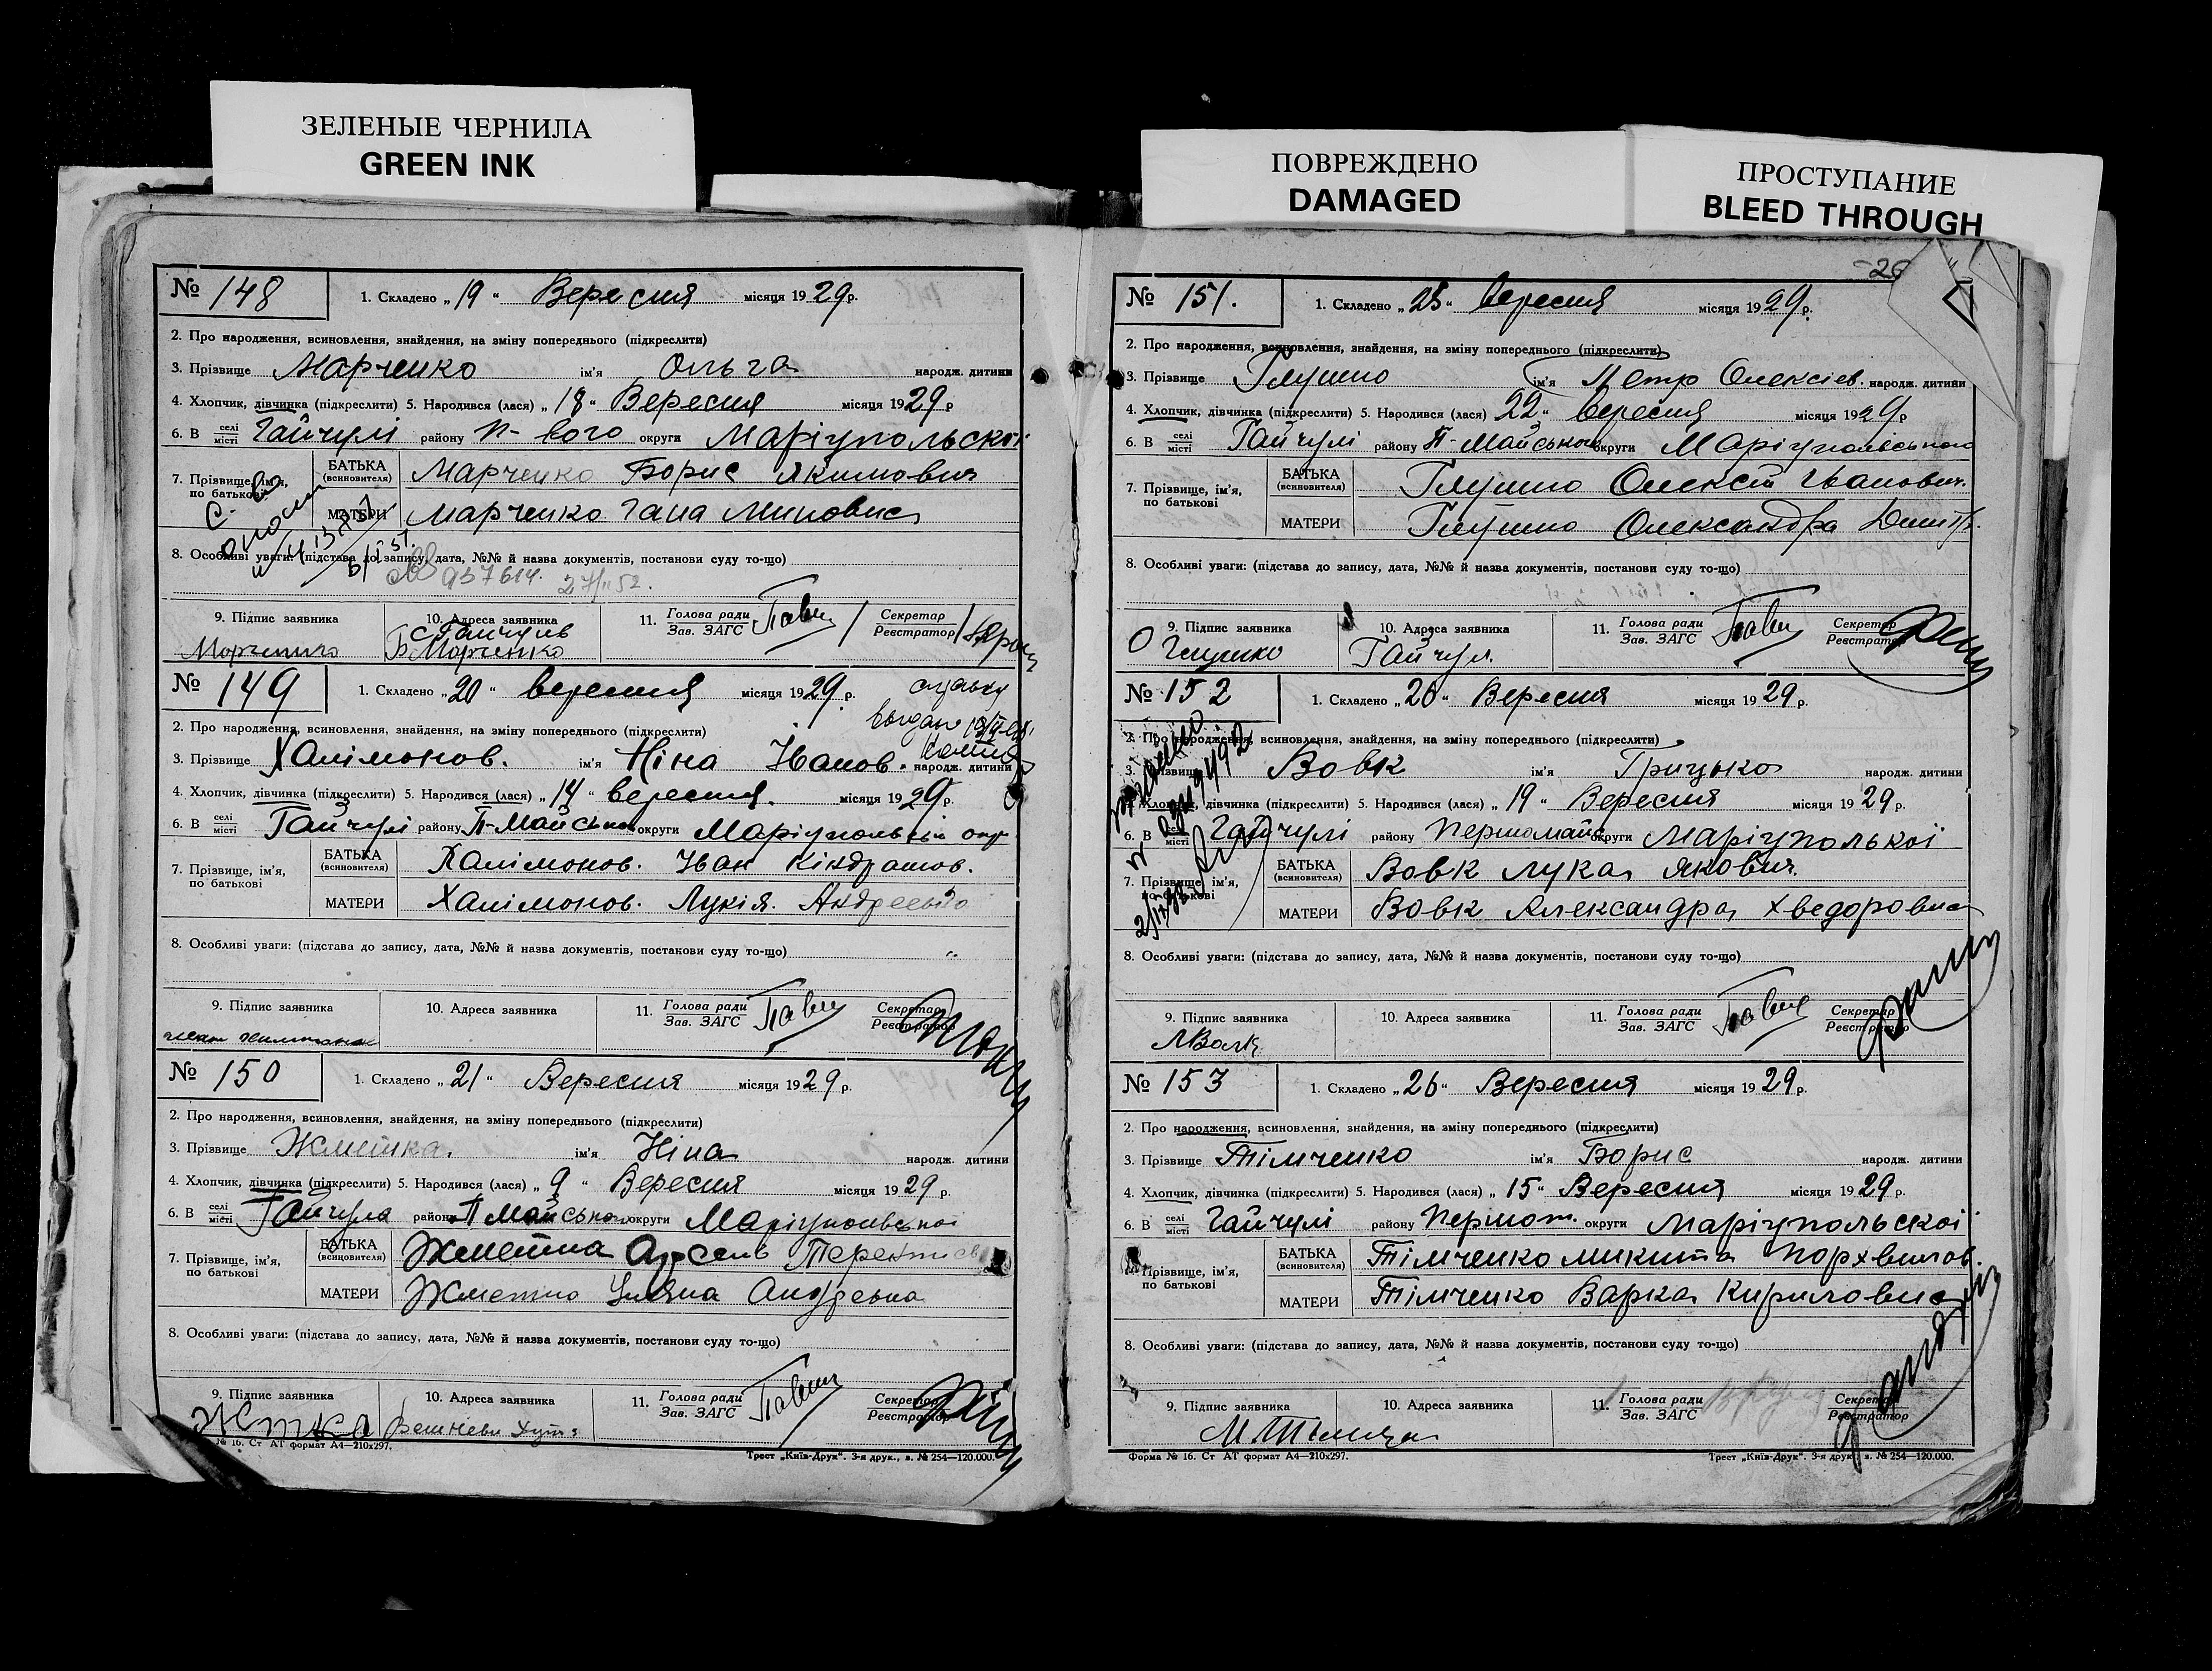 ЗЕЛЕНЫЕ ЧЕРНИЛА
GREEN INK
ПОВРЕЖДЕНО
DAMAGED
ПРОСТУПАНИЕ
BLEED THROUGH
№ 148 1. Складено „19“ Вересня місяця 1929р.
2. Про народження, всиновлення, знайдення, на зміну попереднього (підкреслити)
3. Прізвище Марченко ім'я Ольга народж. дитини
4. Хлопчик, дівчинка (підкреслити) 5. Народився (лася) „18“ Вересня місяця 1929р
6. В селі місті Гайчулі району П-вого округи Маріупольскої
7. Прізвище, ім'я, по батькові
БАТЬКА (всиновителя) Марченко Борис Якимович
МАТЕРИ Марченко Гана
8. Особливі уваги: (підстава до запису, дата, №№ й назва документів, постанови суду то-що)
937614.
9. Підпис заявника Марченко
10. Адреса заявника с Гайчуль Б Марченко
11. Голова ради Зав. ЗАГС
Секретар Реєстратор
№ 149 1. Складено „20“ вересня місяця 1929р.
2. Про народження, всиновлення, знайдення, на зміну попереднього (підкреслити)
3. Прізвище Халімонов. ім'я Ніна Іванов. народж. дитини
4. Хлопчик, дівчинка (підкреслити) 5. Народився (лася) „14“ вересня. місяця 1929р.
6. В селі місті Гайчулі району П-Майського округи Маріупольській окр
7. Прізвище, ім'я, по батькові
БАТЬКА (всиновителя) Халімонов. Іван Кіндратов.
МАТЕРИ Халімонов. Лукія. Андреевна
8. Особливі уваги: (підстава до запису, дата, №№ й назва документів, постанови суду то-що)
9. Підпис заявника
10. Адреса заявника
11. Голова ради Зав. ЗАГС
Секретар Реєстратор
№ 150 1. Складено „21“ Вересня місяця 1929р.
2. Про народження, всиновлення, знайдення, на зміну попереднього (підкреслити)
3. Прізвище ім'я Ніна народж. дитини
4. Хлопчик, дівчинка (підкреслити) 5. Народився (лася) „9“ Вересня місяця 1929р.
6. В селі місті Гайчула району П Майського округи Маріупольської
7. Прізвище, ім'я, по батькові
БАТЬКА (всиновителя) Арсень
МАТЕРИ Уляна Андревна
8. Особливі уваги: (підстава до запису, дата, №№ й назва документів, постанови суду то-що)
9. Підпис заявника
10. Адреса заявника
11. Голова ради Зав. ЗАГС
Секретар Реєстратор
№ 16. Ст АТ формат А4—210х297.
Трест „Київ-Друк“. 3-я друк., в. № 254—120.000.
№ 151. 1. Складено „25“ вересня місяця 1929р.
2. Про народження, всиновлення, знайдення, на зміну попереднього (підкреслити)
3. Прізвище Глушко ім'я Петр Олексіев. народж. дитини
4. Хлопчик, дівчинка (підкреслити) 5. Народився (лася) 22“ вересня місяця 1929р
6. В селі місті Гайчулі району П-Майського округи Маріупольського
7. Прізвище, ім'я, по батькові
БАТЬКА (всиновителя) Глушко Олексій Іванович.
МАТЕРИ Глушко Олександра Дмитр.
8. Особливі уваги: (підстава до запису, дата, №№ й назва документів, постанови суду то-що)
9. Підпис заявника О Глушко
10. Адреса заявника Гайчул.
11. Голова ради Зав. ЗАГС
Секретар Реєстратор
№ 152 1. Складено „26“ Вересня місяця 1929р.
2. Про народження, всиновлення, знайдення, на зміну попереднього (підкреслити)
3. Прізвище Вовк ім'я Грицько народж. дитини
4. Хлопчик, дівчинка (підкреслити) 5. Народився (лася) „19“ Вересня місяця 1929р.
6. В селі місті Гайчулі району Першомайс округи Маріуполькоі
7. Прізвище, ім'я, по батькові
БАТЬКА (всиновителя) Вовк Лука Якович.
МАТЕРИ Вовк Александра Хведоровна
8. Особливі уваги: (підстава до запису, дата, №№ й назва документів, постанови суду то-що)
9. Підпис заявника
10. Адреса заявника
11. Голова ради Зав. ЗАГС
Секретар Реєстратор
№ 153 1. Складено „26“ Вересня місяця 1929р.
2. Про народження, всиновлення, знайдення, на зміну попереднього (підкреслити)
3. Прізвище Тімченко ім'я Борис народж. дитини
4. Хлопчик, дівчинка (підкреслити) 5. Народився (лася) „15“ Вересня місяця 1929р.
6. В селі місті Гайчулі району Першот. округи Маріупольскоі
7. Прізвище, ім'я, по батькові
БАТЬКА (всиновителя) Тімченко Микита
МАТЕРИ Тімченко Варка Кириловна
8. Особливі уваги: (підстава до запису, дата, №№ й назва документів, постанови суду то-що)
9. Підпис заявника
10. Адреса заявника
11. Голова ради Зав. ЗАГС
Секретар Реєстратор
Форма № 16. Ст АТ формат А4—210х297.
Трест „Київ-Друк“. 3-я друк., в. № 254—120.000.